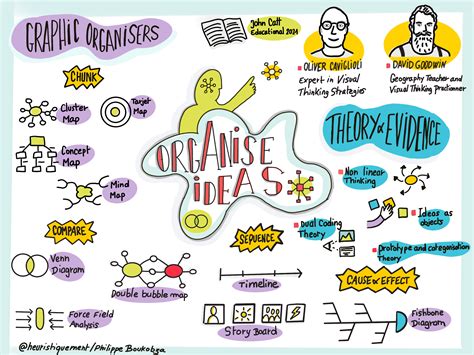 GRAPHIC ORGANISERS
CHUNK
Cluster
Map
Target
Map
Concept
Map
Mind
Map
COMPARE
Venn
Diagram
Double bubble map
Force Field
Analysis
@heuristiquement/Philippe Boukobza
John Catt
Educational 2021
ORGANISE
IDEAS
SEQUENCE
Timeline
Story Board
OLIVER CAVIGLIOLI
Expert in Visual
Thinking Strategies
DAVID GOODWIN
Geography Teacher and
Visual Thinking Practionner
THEORY & EVIDENCE
Non linear
Thinking
Ideas as
objects
Dual Coding
Theory
Prototype and categorisation
Theory
CAUSE & EFFECT
Fishbone
Diagram